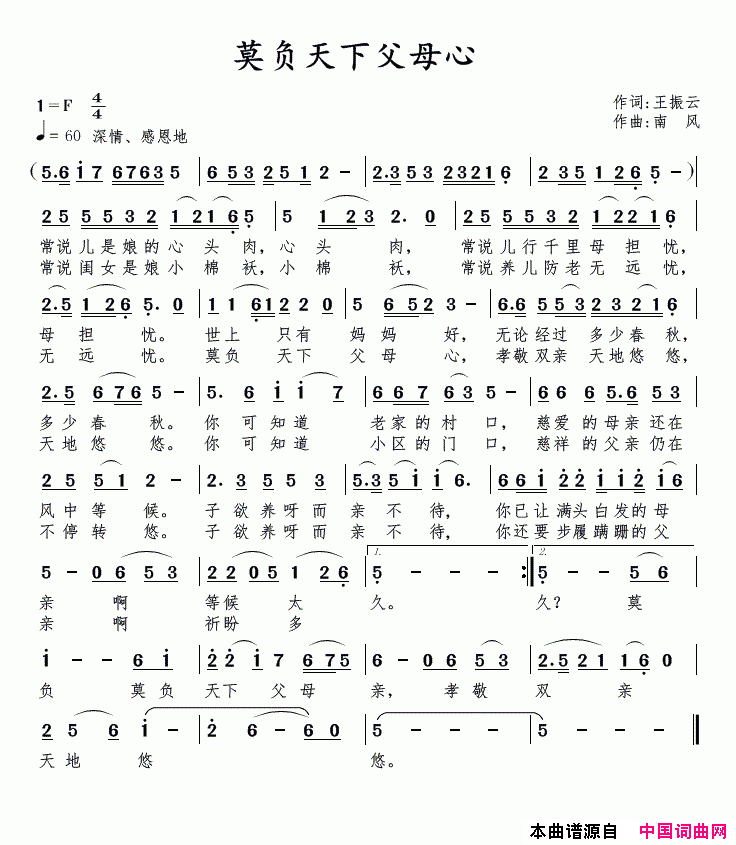 莫负天下父母心
1=F 4/4
作词:王振云
作曲:南 风
♩=60 深情、感恩地
(5.6 i7 67635 | 6 53 251 2- | 2.353 2321 6 | 235 126 5-)
25 5532 1216 5 | 5 123 2.0 | 25 5532 1221 6
常说儿是娘的心头肉,心头 肉, 常说儿行千里母担忧,
常说闺女是娘小棉袄,小棉 袄, 常说养儿防老无远忧,
2.5 126 5.0 | 11 61220 5 652 3- | 6.6 553 2235 6
母担 忧。 世上 只有 妈妈 好, 无论经过 多少春秋,
无远 忧。 莫负 天下 父母 心, 孝敬双亲 天地悠悠,
2.5 676 5- | 5.6 i i7 | 667 63 5- | 66 6 5.6 53
多少春 秋。 你可知道 老家的村 口, 慈爱的母亲还在
天地悠 悠。 你可知道 小区的门 口, 慈祥的父亲仍在
25 51 2- | 22 5532 1 2 | 5.3 5i i6. | 66i 22 ii2 i6
风中等 候。 子欲养呀而 亲不待, 你已让满头白发的母
不停转 悠。 子欲养呀而 亲不待, 你还要步履蹒跚的父
5- 06 53 | 2205 126 | 1. 5--- :| 2. 5-- 56
亲 啊 等候 太 久。 久? 莫
亲 啊 祈盼 多
i-- 6i | 22 i7 675 | 6- 06 53 | 2.5 21 16 0
负 莫负 天下 父母 亲, 孝敬 双 亲
25 6 i- | 2 6-60 | 5--- | 5---
天地 悠 悠。
本曲谱源自 中国词曲网